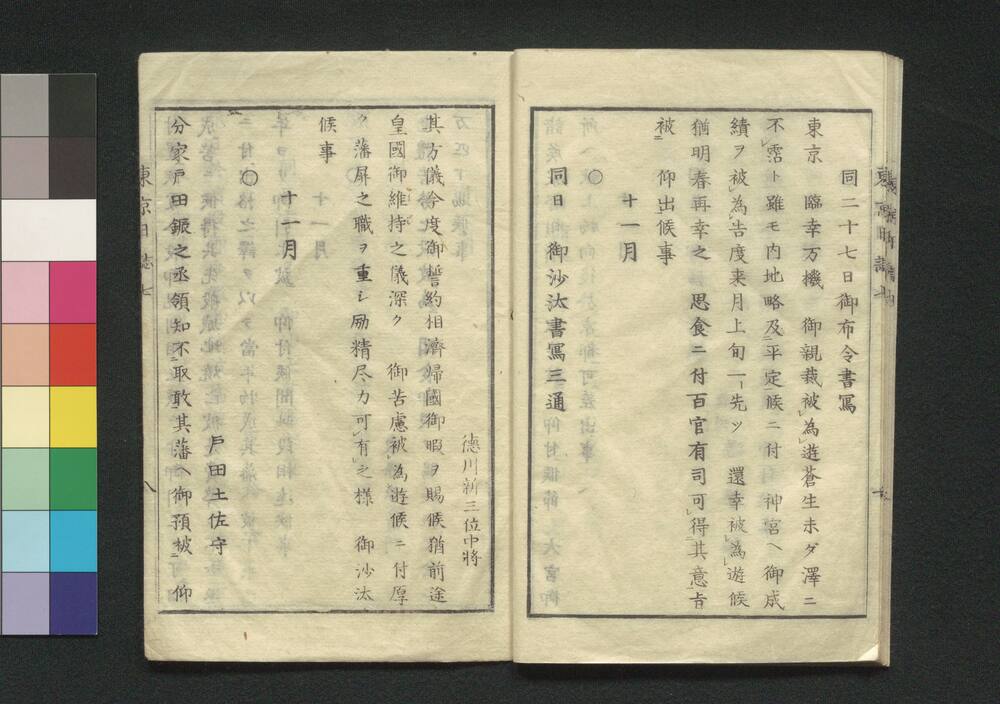 同二十七日御布令書寫
東京　臨幸万機　御親裁被レ為レ遊蒼生未ダ澤ニ
不レ霑ト雖モ内地略及二平定一候ニ付　神宮ヘ御成
績ヲ被レ為レ告度来月上旬一ト先ツ　還幸被レ為レ遊候
猶明春再幸之　思食ニ付百官有司可レ得二其意一旨
被二　仰出一候事
十一月
○
同日　御沙汰書寫三通
德川新三位中將
其方儀今度御誓約相濟歸國御暇ヲ賜候猶前途
皇國御維持之儀深ク　御苦慮被レ為レ遊候ニ付厚
ク藩屏之職ヲ重シ励精尽力可レ有レ之様　御沙汰
候事
十一月
○
戸田土佐守
分家戸田鋠之丞領知不二取敢一其藩ヘ御預被二　仰
東京日誌七
八